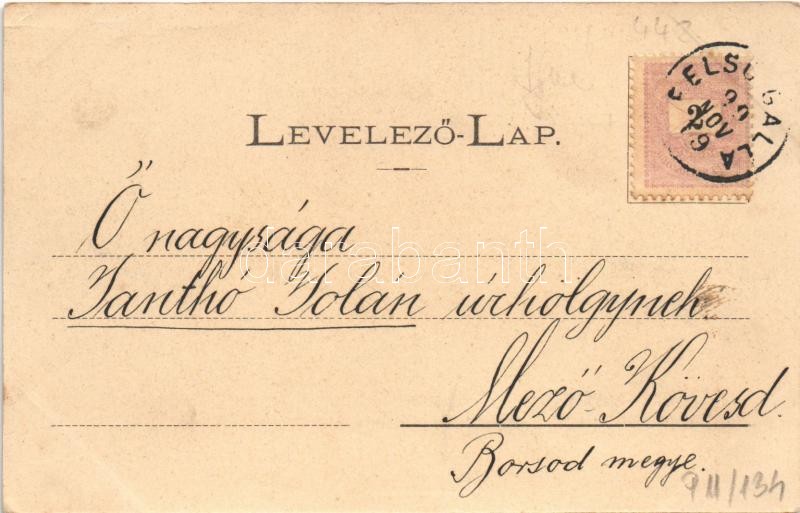 448
LEVELEZŐ-LAP.
FELSŐ GALLA
99
NOV
29
Ő nagysága
darabanth
Janthó Jolán úrhölgynek
Mező-Kövesd.
Borsod megye.
911/134